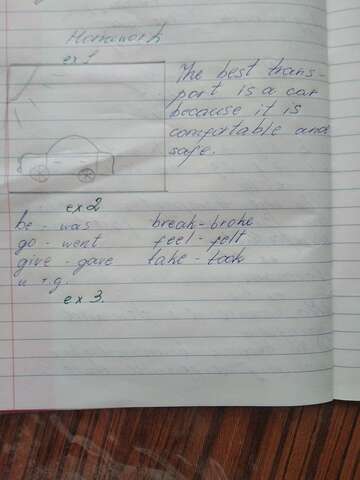 Homework
ex 1
The best trans-
port is a car
because it is
comfortable and
safe.
ex 2
be - was break - broke
go - went feel - felt
give - gave take - took
и т.д.
ex 3.